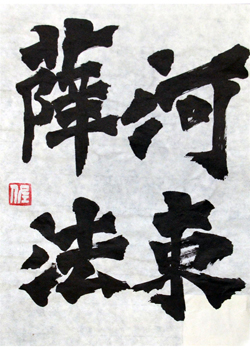 河東
薛法